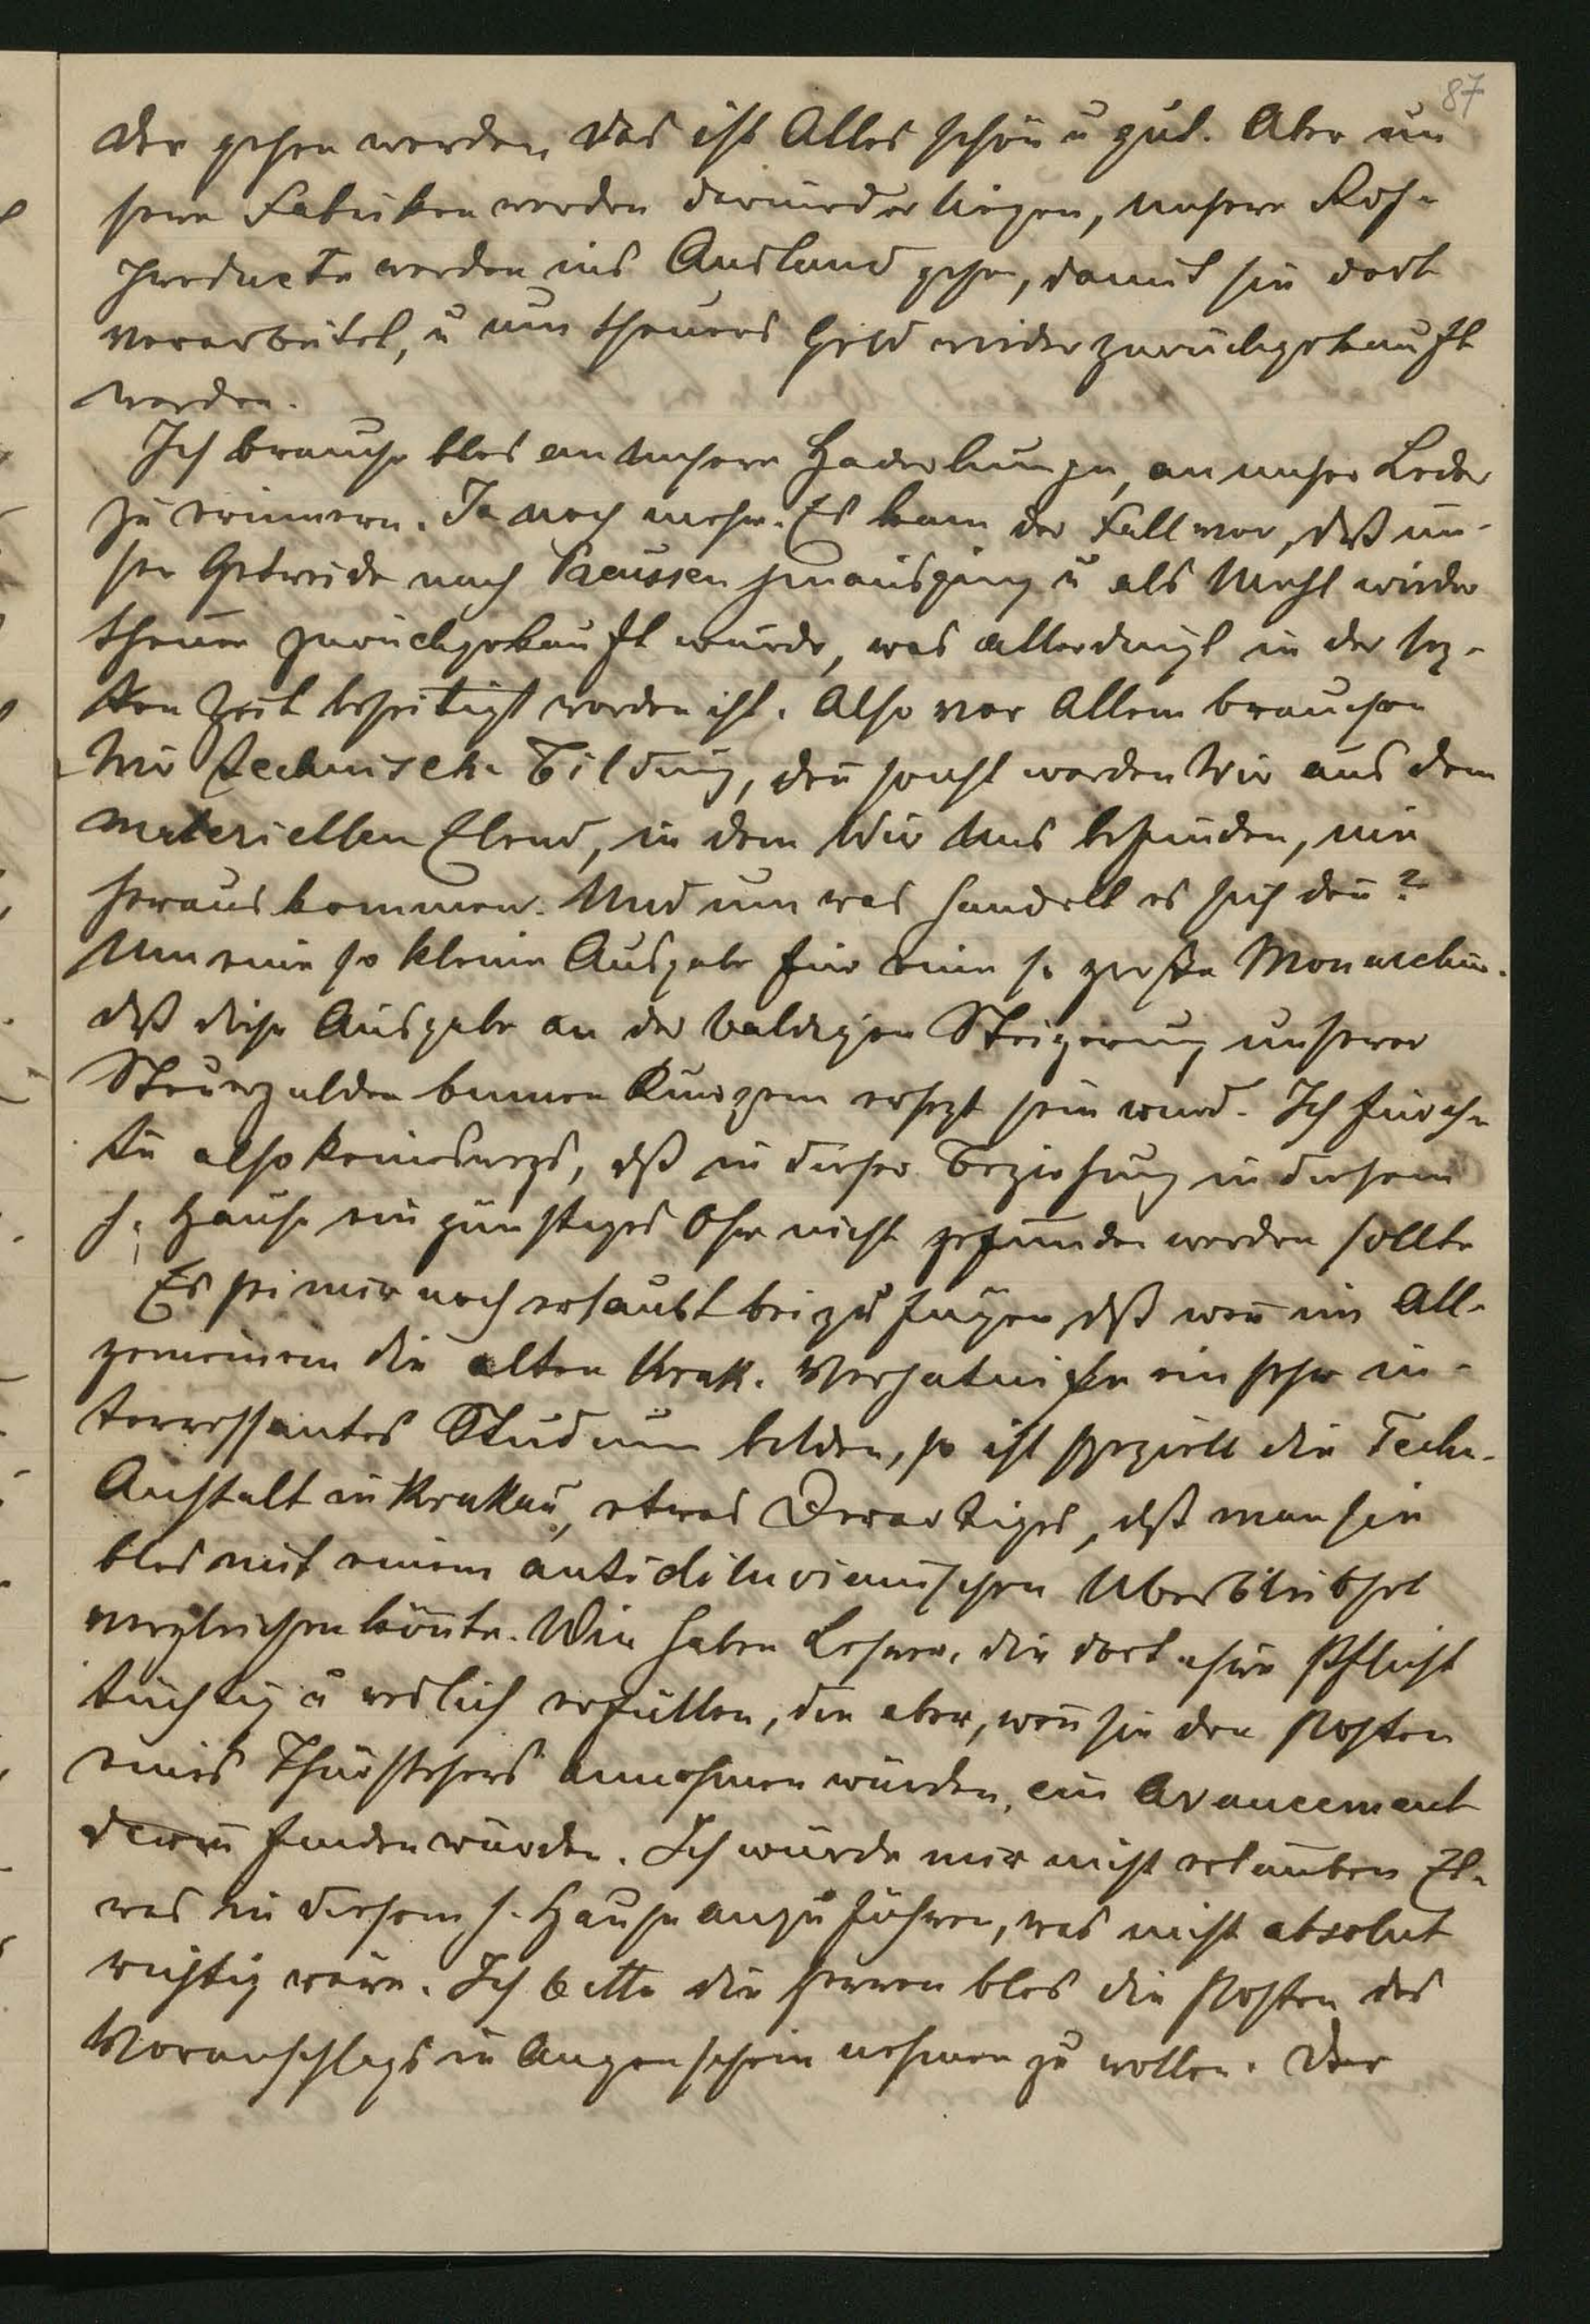 87
der gehen werden, das ist Alles schön u gut. Aber un
sere Fabriken werden darniederliegen, unsere Roh-
producte werden ins Ausland gehen, damit sie dort
verarbeitet, u um theueres Geld wieder zurückgekauft
werden.
Ich brauche blos an unsere Haderlumpen, an unser Leder
zu erinnern. Ja noch mehr. Es kam der Fall vor, daß un-
ser Getreide nach Preussen hinausging u als Mehl wieder
theuer zurückgekauft wurde, was allerdings in der letz-
ten Zeit beseitigt worden ist. Also vor Allem brauchen
Wir technische Bildung, deñ sonst werden Wir aus dem
materiellen Elend, in dem Wir Uns befinden, nie
herauskommen. Und um was handelt es sich deñ?
Um eine so kleine Ausgabe für eine so große Monarchie.
daß diese Ausgabe an der baldigen Steigerung unserer
Steuergulden binnen Kurzem ersezt sein wird. Ich fürch-
te also keineswegs, daß in dieser Beziehung in diesem
h. Hause ein günstiges Ohr nicht gefunden werden sollte
Es sei mir noch erlaubt beizufügen, daß weñ im All-
gemeinen die alten Krak. Verhältniße ein sehr in-
teressantes Studium bilden, so ist speziell die Techn.
Anstalt in Krakau, etwas Derartiges, daß man sie
blos mit einem antidiluvianischen Überbleibsel
vergleichen köñte. Wir haben Lehrer, die dort ihre Pflicht
tüchtig u redlich erfüllen, die aber, weñ sie den Posten
eines Thürstehers annehmen würden, ein Avancement
darin finden würden. Ich würde mir nicht erlauben Et-
was in diesem h. Hause anzuführen, was nicht absolut
richtig wäre. Ich bitte die Herren blos die Posten des
Voranschlags in Augenschein nehmen zu wollen. Der